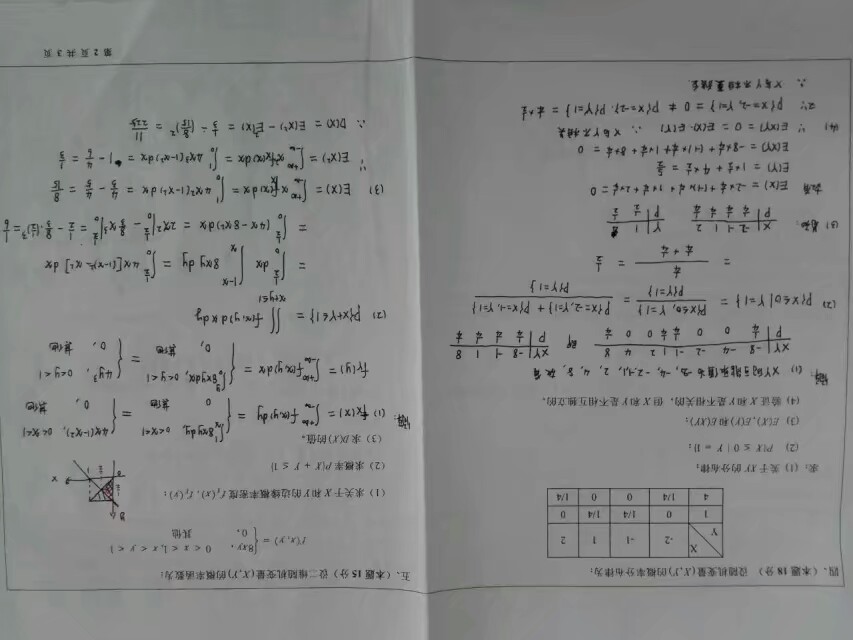 四、(本题18分) 设随机变量(X,Y)的概率分布律为:
X -2 -1 1 2
Y
1 0 1/4 1/4 0
4 1/4 0 0 1/4
求: (1) 关于XY的分布律;
(2) P{X ≤ 0 | Y = 1};
(3) E(X), E(Y)和E(XY);
(4) 验证X和Y是不相关的, 但X和Y是不相互独立的。
解: (1) XY的可能取值为-8, -4, -2, -1, 1, 2, 4, 8, 故有
XY -8 -4 -2 -1 1 2 4 8 即 XY -8 -1 1 8
P 1/4 0 0 1/4 1/4 0 0 1/4 P 1/4 1/4 1/4 1/4
(2) P{X≤0|Y=1} = P{X≤0, Y=1}/P{Y=1} = (P{X=-2,Y=1} + P{X=-1,Y=1})/P{Y=1}
= (1/4)/(1/4+1/4) = 1/2
(3) 易知: X -2 -1 1 2 Y 1
P 1/4 1/4 1/4 1/4 P 1/2 1/2
故有 E(X) = -2×1/4+(-1)×1/4+1×1/4+2×1/4 = 0
E(Y) = 1×1/2+4×1/2 = 5/2
E(XY) = -8×1/4+(-1)×1/4+1×1/4+8×1/4 = 0
(4) ∵ E(XY) = 0 = E(X)·E(Y) ∴ X与Y不相关
又∵ P{X=-2, Y=1} = 0 ≠ P{X=-2}·P{Y=1} = 1/4×1/2
∴ X与Y不相互独立
五、(本题15分) 设二维随机变量(X,Y)的概率函数为:
f(x,y) = { 8xy, 0 < x < 1, x < y < 1
0, 其他
(1) 求关于X和Y的边缘概率密度f_X(x), f_Y(y);
(2) 求概率P{X + Y ≤ 1}
(3) 求D(X)的值。
y
1/2
x
1/2 1
解: (1) f_X(x) = ∫_{-∞}^{+∞} f(x,y)dy = { ∫_x^1 8xydy, 0<x<1 = { 4x(1-x²), 0<x<1
0 其他 0, 其他
f_Y(y) = ∫_{-∞}^{+∞} f(x,y)dx = { ∫_0^y 8xydx, 0<y<1 = { 4y³, 0<y<1
0, 其他 0, 其他
(2) P{X+Y≤1} = ∬_{x+y≤1} f(x,y)dxdy
= ∫_0^{1/2} dx ∫_x^{1-x} 8xydy = ∫_0^{1/2} 4x[(1-x)²-x²]dx
= ∫_0^{1/2} (4x-8x²)dx = 2x²|_0^{1/2} - 8/3x³|_0^{1/2} = 1/2 - 8/3·(1/2)³ = 1/6
(3) E(X) = ∫_{-∞}^{+∞} xf_X(x)dx = ∫_0^1 4x²(1-x²)dx = 4/3 - 4/5 = 8/15
∵ E(X²) = ∫_{-∞}^{+∞} x²f_X(x)dx = ∫_0^1 4x³(1-x²)dx = 1 - 4/6 = 1/3
∴ D(X) = E(X²) - E²(X) = 1/3 - (8/15)² = 11/225
第 2 页 共 3 页